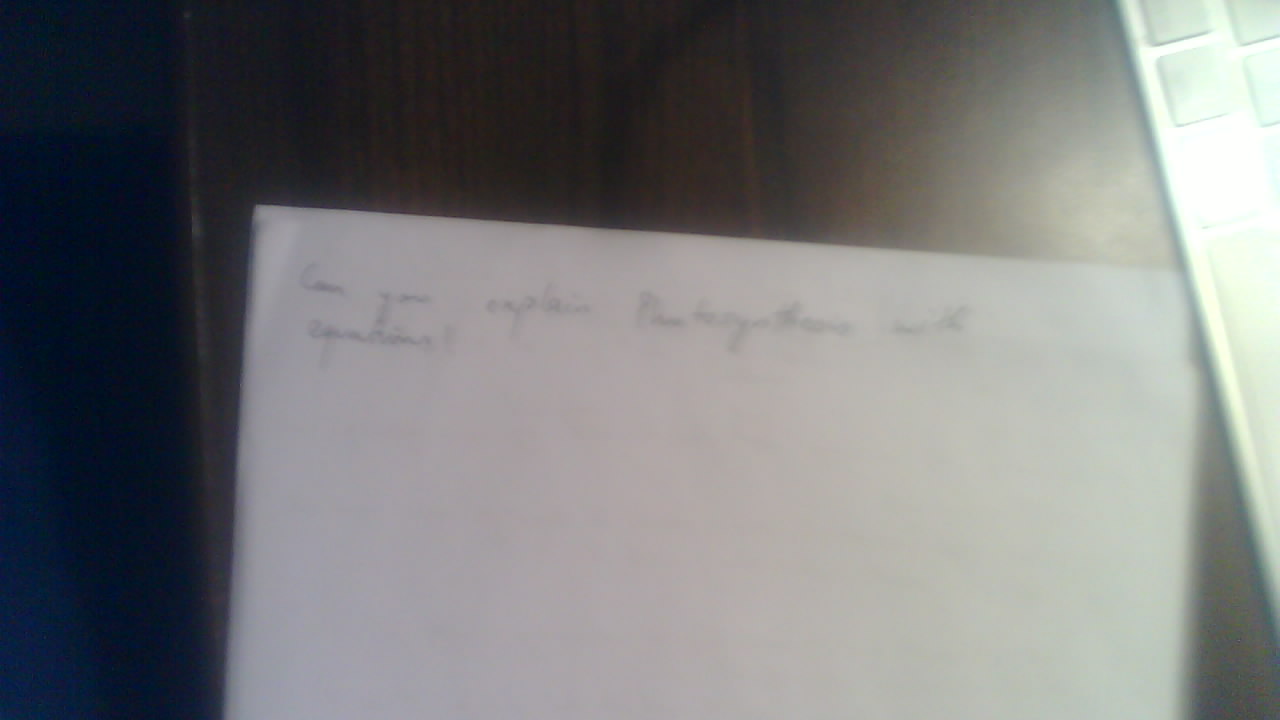 Can you explain Phatosynthesis with
equations?